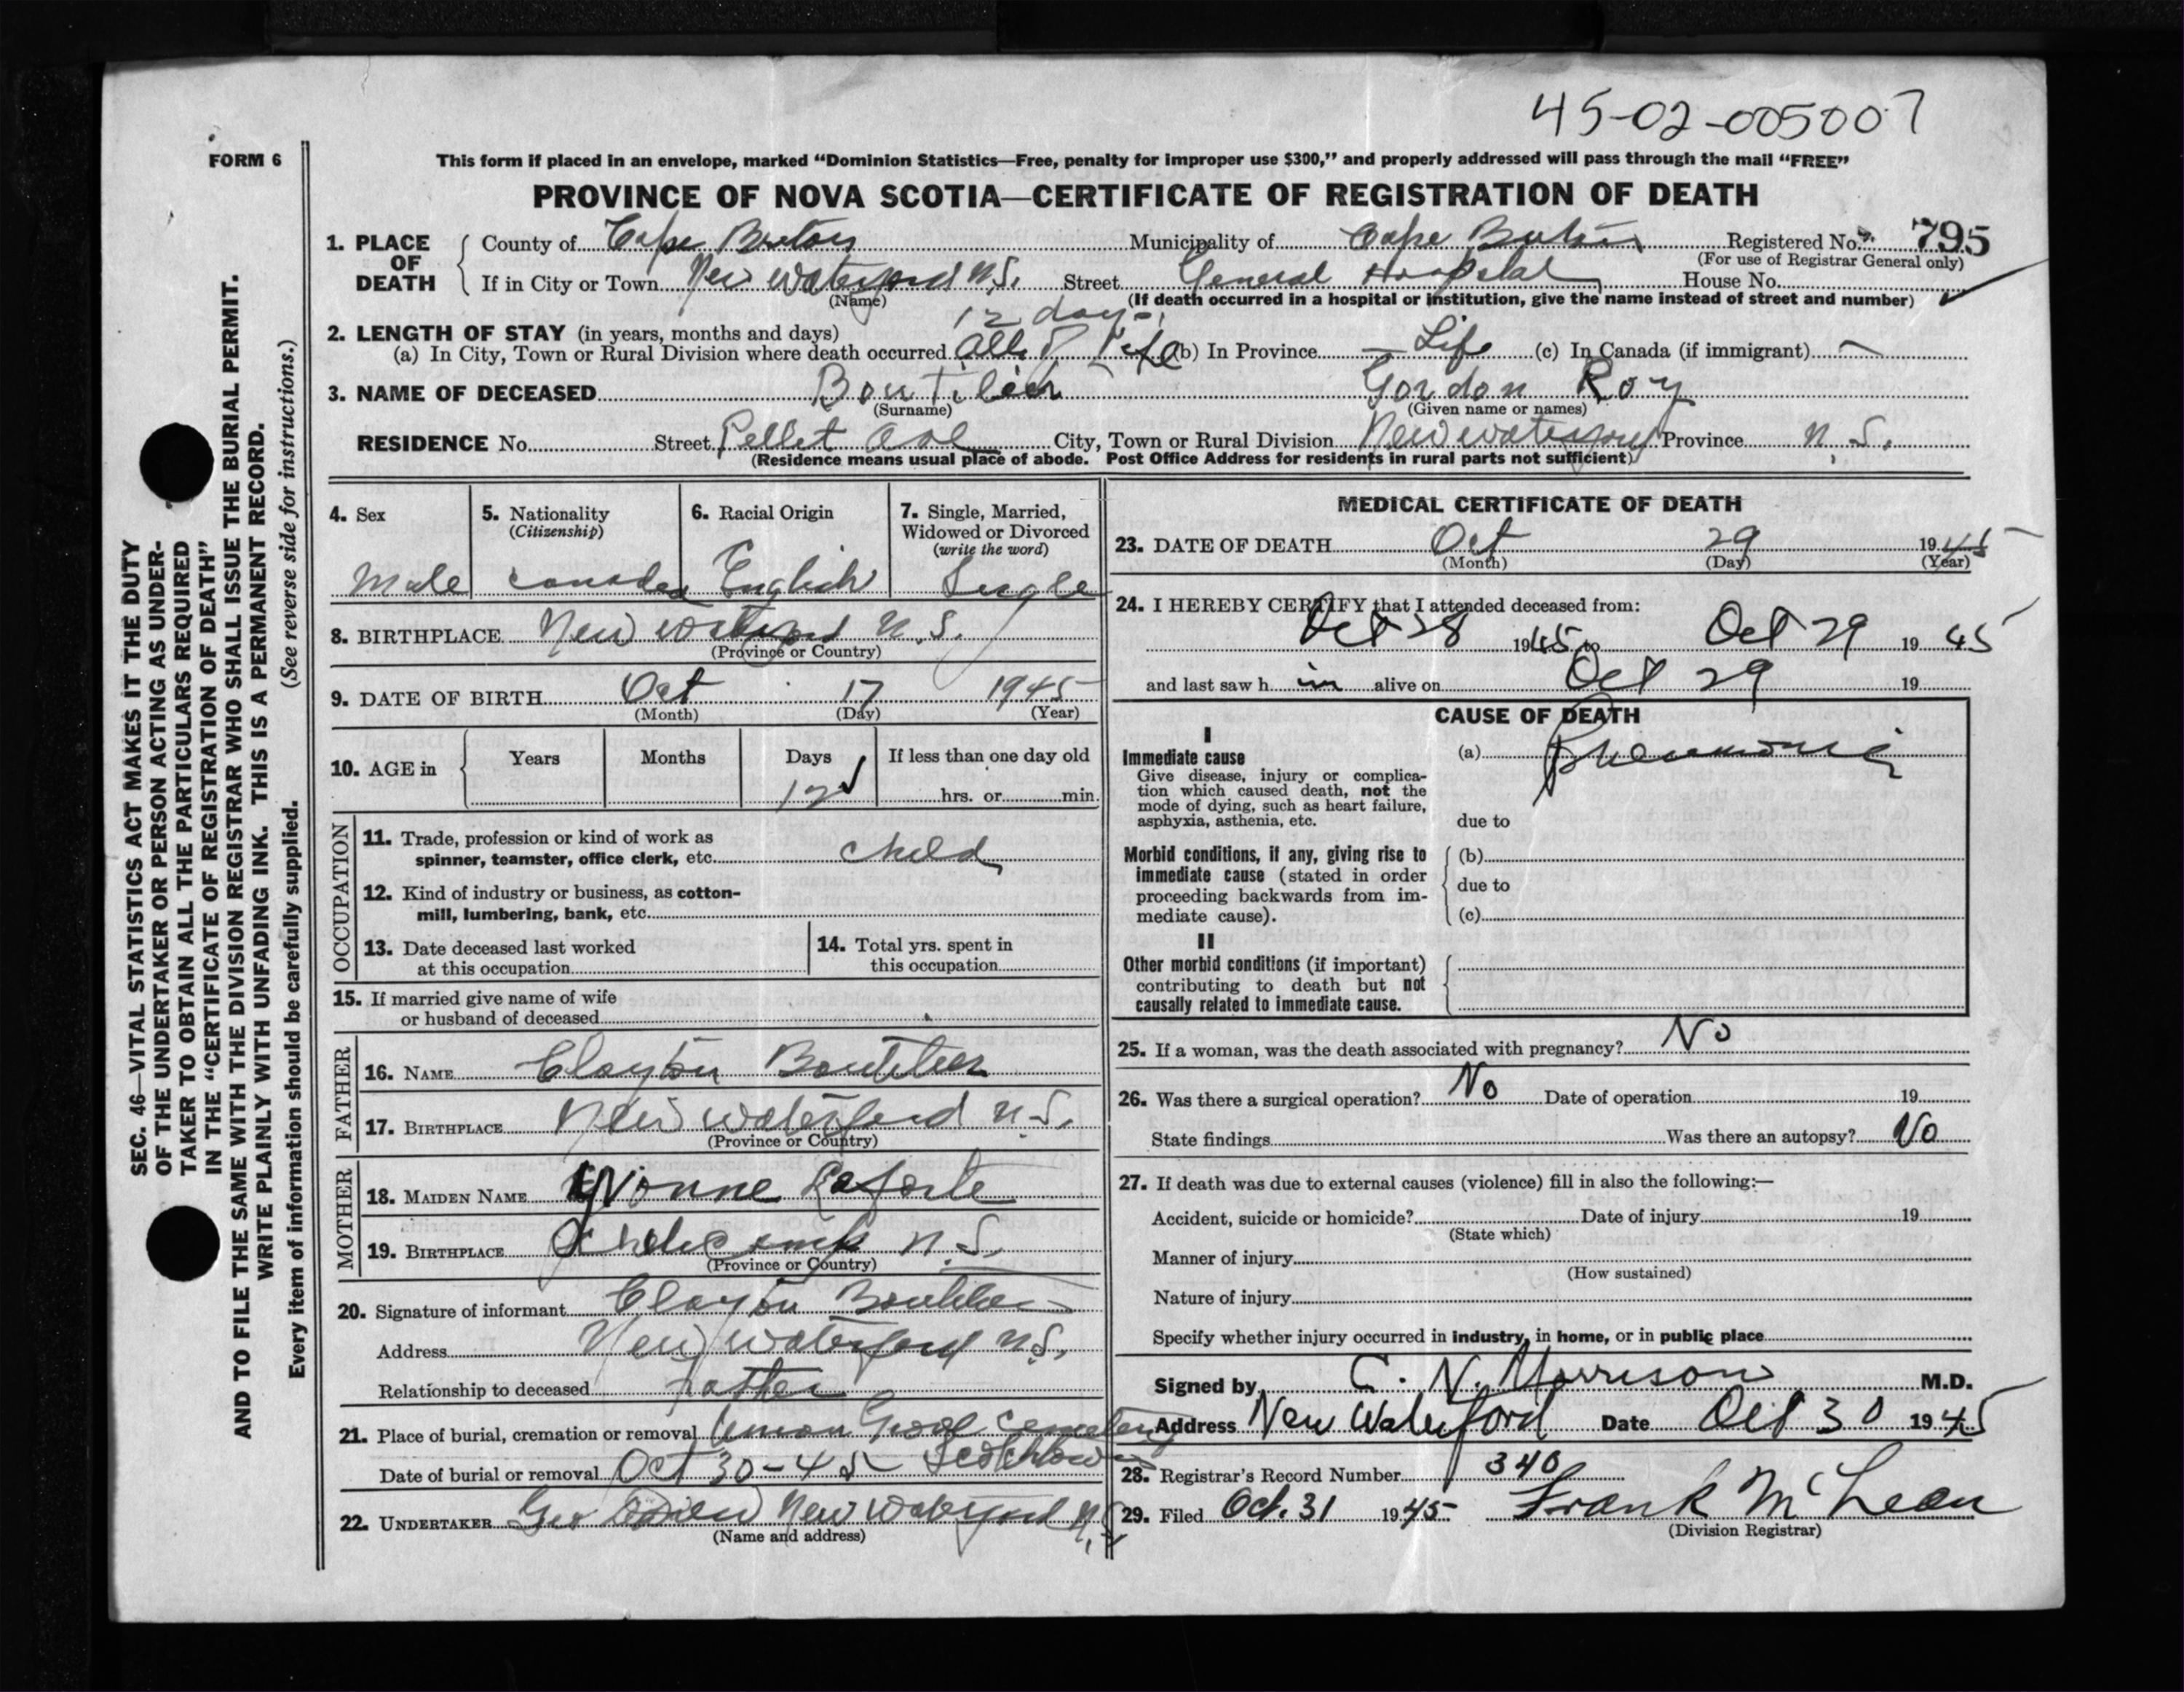 45-02-005007
FORM 6
This form if placed in an envelope, marked “Dominion Statistics—Free, penalty for improper use $300,” and properly addressed will pass through the mail “FREE”
PROVINCE OF NOVA SCOTIA—CERTIFICATE OF REGISTRATION OF DEATH
1. PLACE OF DEATH County of Cape Breton Municipality of Cape Breton Registered No. 795
(For use of Registrar General only)
If in City or Town New Waterford N.S. Street General Hospital House No.
(Name) (If death occurred in a hospital or institution, give the name instead of street and number)
12 days
2. LENGTH OF STAY (in years, months and days)
(a) In City, Town or Rural Division where death occurred All of life (b) In Province Life (c) In Canada (if immigrant) —
3. NAME OF DECEASED Boutilier Gordon Roy
(Surname) (Given name or names)
RESIDENCE No. Street Pellet Ave City, Town or Rural Division New Waterford Province N.S.
(Residence means usual place of abode. Post Office Address for residents in rural parts not sufficient)
4. Sex 5. Nationality 6. Racial Origin 7. Single, Married,
(Citizenship) Widowed or Divorced
(write the word)
Male Canada English Single
8. BIRTHPLACE New Waterford N.S.
(Province or Country)
9. DATE OF BIRTH Oct 17 1945
(Month) (Day) (Year)
10. AGE in Years Months Days If less than one day old
12 hrs. or min.
OCCUPATION
11. Trade, profession or kind of work as
spinner, teamster, office clerk, etc. child
12. Kind of industry or business, as cotton-
mill, lumbering, bank, etc.
13. Date deceased last worked 14. Total yrs. spent in
at this occupation this occupation
15. If married give name of wife
or husband of deceased
FATHER
16. NAME Clayton Boutilier
17. BIRTHPLACE New Waterford N.S.
(Province or Country)
MOTHER
18. MAIDEN NAME Yvonne LeForte
19. BIRTHPLACE Cheticamp N.S.
(Province or Country)
20. Signature of informant Clayton Boutilier
Address New Waterford N.S.
Relationship to deceased Father
21. Place of burial, cremation or removal Union Grove Cemetery
Date of burial or removal Oct 30-45 Scotchtown
22. UNDERTAKER Geo New Waterford N.S.
(Name and address)
MEDICAL CERTIFICATE OF DEATH
23. DATE OF DEATH Oct 29 1945
(Month) (Day) (Year)
24. I HEREBY CERTIFY that I attended deceased from:
Oct 28 1945 to Oct 29 1945
and last saw h im alive on Oct 29 19
CAUSE OF DEATH
I
Immediate cause (a) Pneumonia
Give disease, injury or complica-
tion which caused death, not the
mode of dying, such as heart failure,
asphyxia, asthenia, etc. due to
Morbid conditions, if any, giving rise to (b)
immediate cause (stated in order due to
proceeding backwards from im-
mediate cause). (c)
II
Other morbid conditions (if important)
contributing to death but not
causally related to immediate cause.
25. If a woman, was the death associated with pregnancy? No
26. Was there a surgical operation? No Date of operation 19
State findings Was there an autopsy? No
27. If death was due to external causes (violence) fill in also the following:—
Accident, suicide or homicide? Date of injury 19
(State which)
Manner of injury
(How sustained)
Nature of injury
Specify whether injury occurred in industry, in home, or in public place
Signed by C. N. Morrison M.D.
Address New Waterford Date Oct 30 1945
28. Registrar's Record Number 340
29. Filed Oct. 31 1945 Frank McLean
(Division Registrar)
SEC. 46—VITAL STATISTICS ACT MAKES IT THE DUTY
OF THE UNDERTAKER OR PERSON ACTING AS UNDER-
TAKER TO OBTAIN ALL THE PARTICULARS REQUIRED
IN THE “CERTIFICATE OF REGISTRATION OF DEATH”
AND TO FILE THE SAME WITH THE DIVISION REGISTRAR WHO SHALL ISSUE THE BURIAL PERMIT.
WRITE PLAINLY WITH UNFADING INK. THIS IS A PERMANENT RECORD.
Every item of information should be carefully supplied. (See reverse side for instructions.)